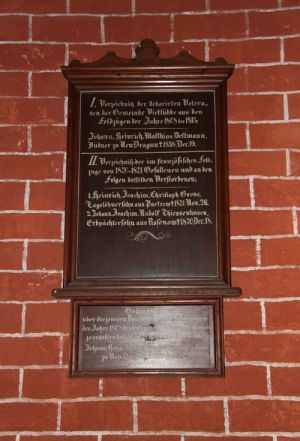 I. Verzeichniß der dekorirten Vetera-
nen der Gemeinde Vietlübbe aus den
Feldzügen der Jahre 1808 bis 1815
Johann, Heinrich, Matthias
Büdner zu Neu Dragun † 1858 Dec. 19.
II. Verzeichniß der im französischen Feld-
zuge von 1870-1871 Gefallenen und an den
Folgen desselben Verstorbenen:
1. Heinrich, Joachim, Christoph Grewe,
Tagelöhnersohn aus Paetrow † 1870 Nov. 26.
2. Johann, Joachim, Rudolf Thiessenhusen,
Erbpächtersohn aus Rosenow † 1870 Dec. 18.
über diejenigen
der Jahre 1808
Johann, Heinr.
zu Neu